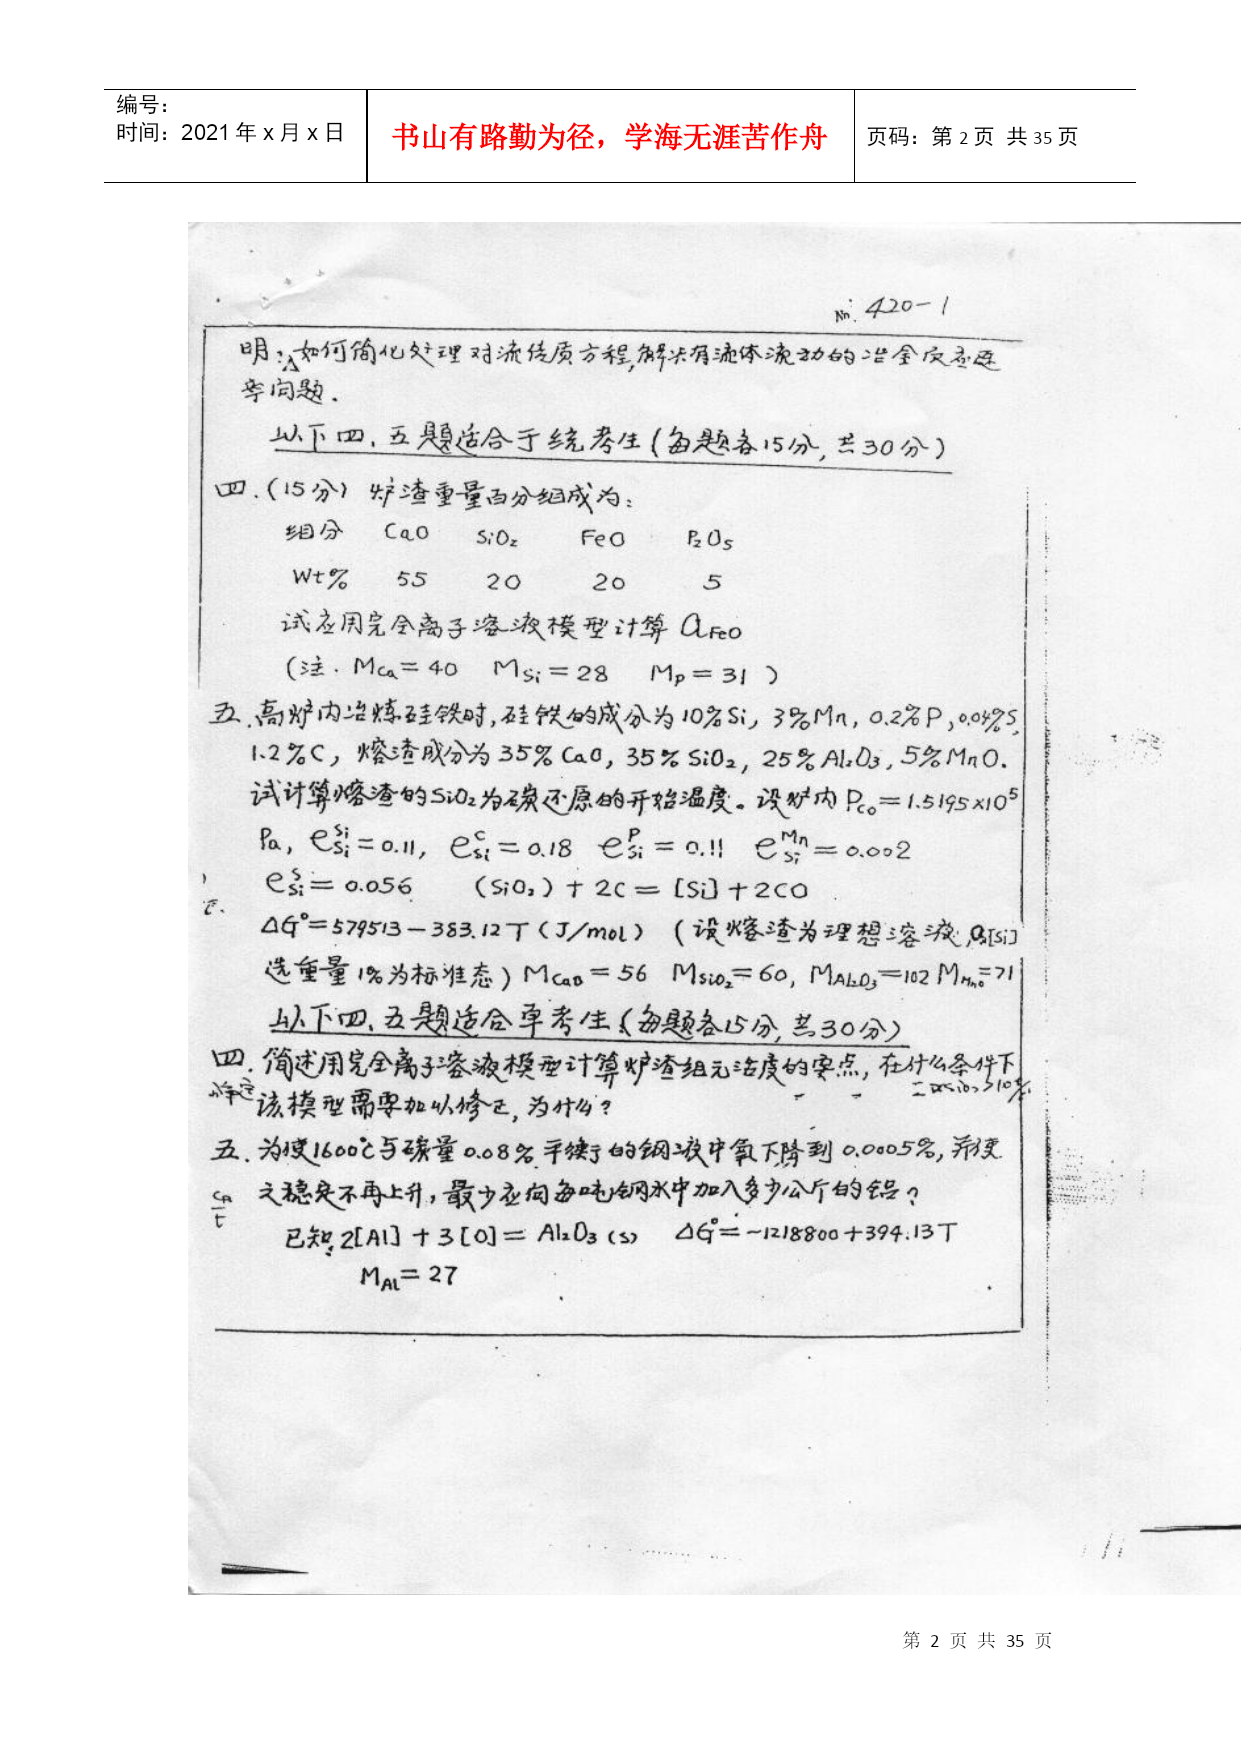 编号：
时间：2021年x月x日
书山有路勤为径，学海无涯苦作舟
页码：第2页 共35页
No. 420-1
明：如何简化处理对流传质方程,解决有流体流动的冶金反应速
率问题.
以下四、五题适合于统考生(每题各15分,共30分)
四.(15分) 炉渣重量百分组成为：
组分 CaO SiO₂ FeO P₂O₅
Wt% 55 20 20 5
试应用完全离子溶液模型计算 a_FeO
(注. M_Ca=40 M_Si=28 M_P=31 )
五.高炉内冶炼硅铁时,硅铁的成分为10%Si, 3%Mn, 0.2%P, 0.04%S,
1.2%C, 熔渣成分为35%CaO, 35%SiO₂, 25%Al₂O₃, 5%MnO.
试计算熔渣的SiO₂为碳还原的开始温度。设炉内 P_CO=1.5195×10⁵
Pa, e_Si^Si=0.11, e_Si^C=0.18 e_Si^P=0.11 e_Si^Mn=0.002
e_Si^S=0.056 (SiO₂)+2C=[Si]+2CO
ΔG°=579513-383.12T(J/mol) (设熔渣为理想溶液, a[Si]
选重量1%为标准态) M_CaO=56 M_SiO₂=60, M_Al₂O₃=102 M_MnO=71
以下四、五题适合单考生(每题各15分,共30分)
四.简述用完全离子溶液模型计算炉渣组元活度的要点,在什么条件下
该模型需要加以修正,为什么?
五.为使1600℃与碳量0.08%平衡的钢液中氧下降到0.0005%,并使
之稳定不再上升,最少应向每吨钢水中加入多少公斤的铝?
已知: 2[Al]+3[O]=Al₂O₃(s) ΔG°=-1218800+394.13T
M_Al=27
第 2 页 共 35 页